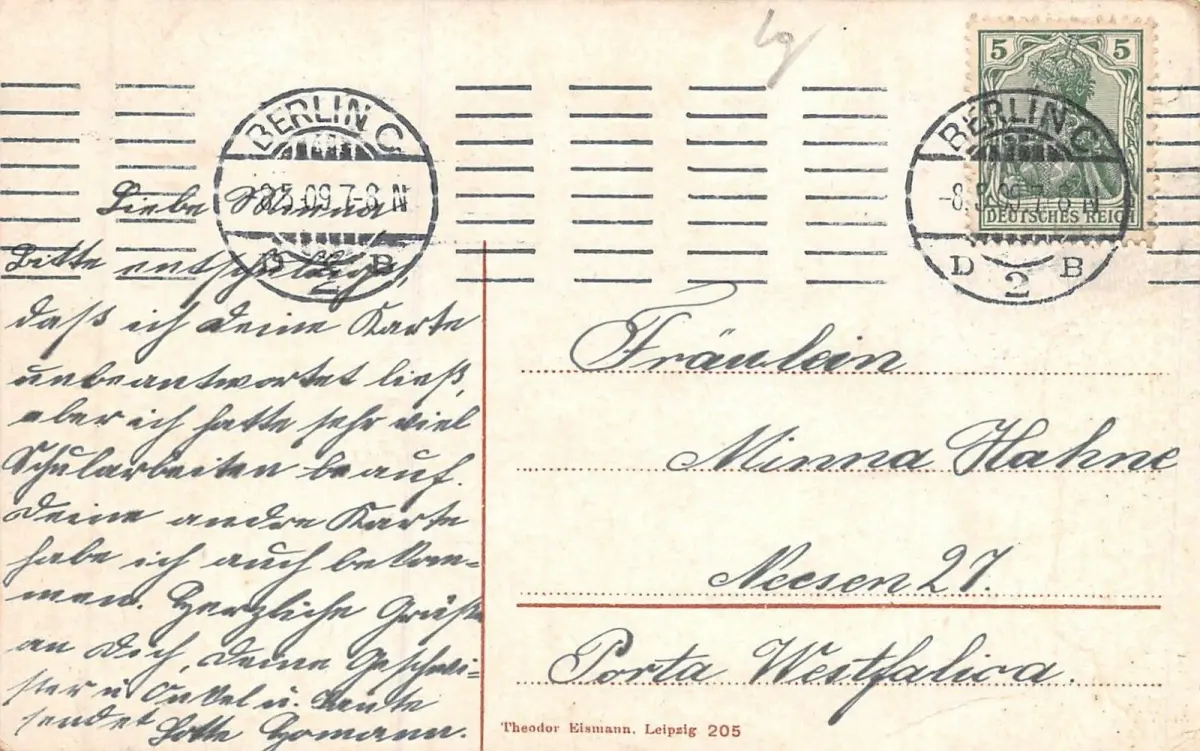 5 5
DEUTSCHES REICH
BERLIN C
8.5.09.7-8 N
D 2 B
BERLIN C
-8.5.09.7-8 N
D 2 B
Liebe Minna
Bitte entschuldige,
daß ich deine Karte
unbeantwortet ließ,
aber ich hatte sehr viel
Schularbeiten be auf.
Deine andre Karte
habe ich auch bekom-
men. Herzliche Grüße
an Dich, deine Geschwi-
ster u. Onkel u. Tante
sendet Lotte Homann.
Fräulein
Minna Hahne
Neesen 27.
Porta Westfalica.
Theodor Eismann, Leipzig 205